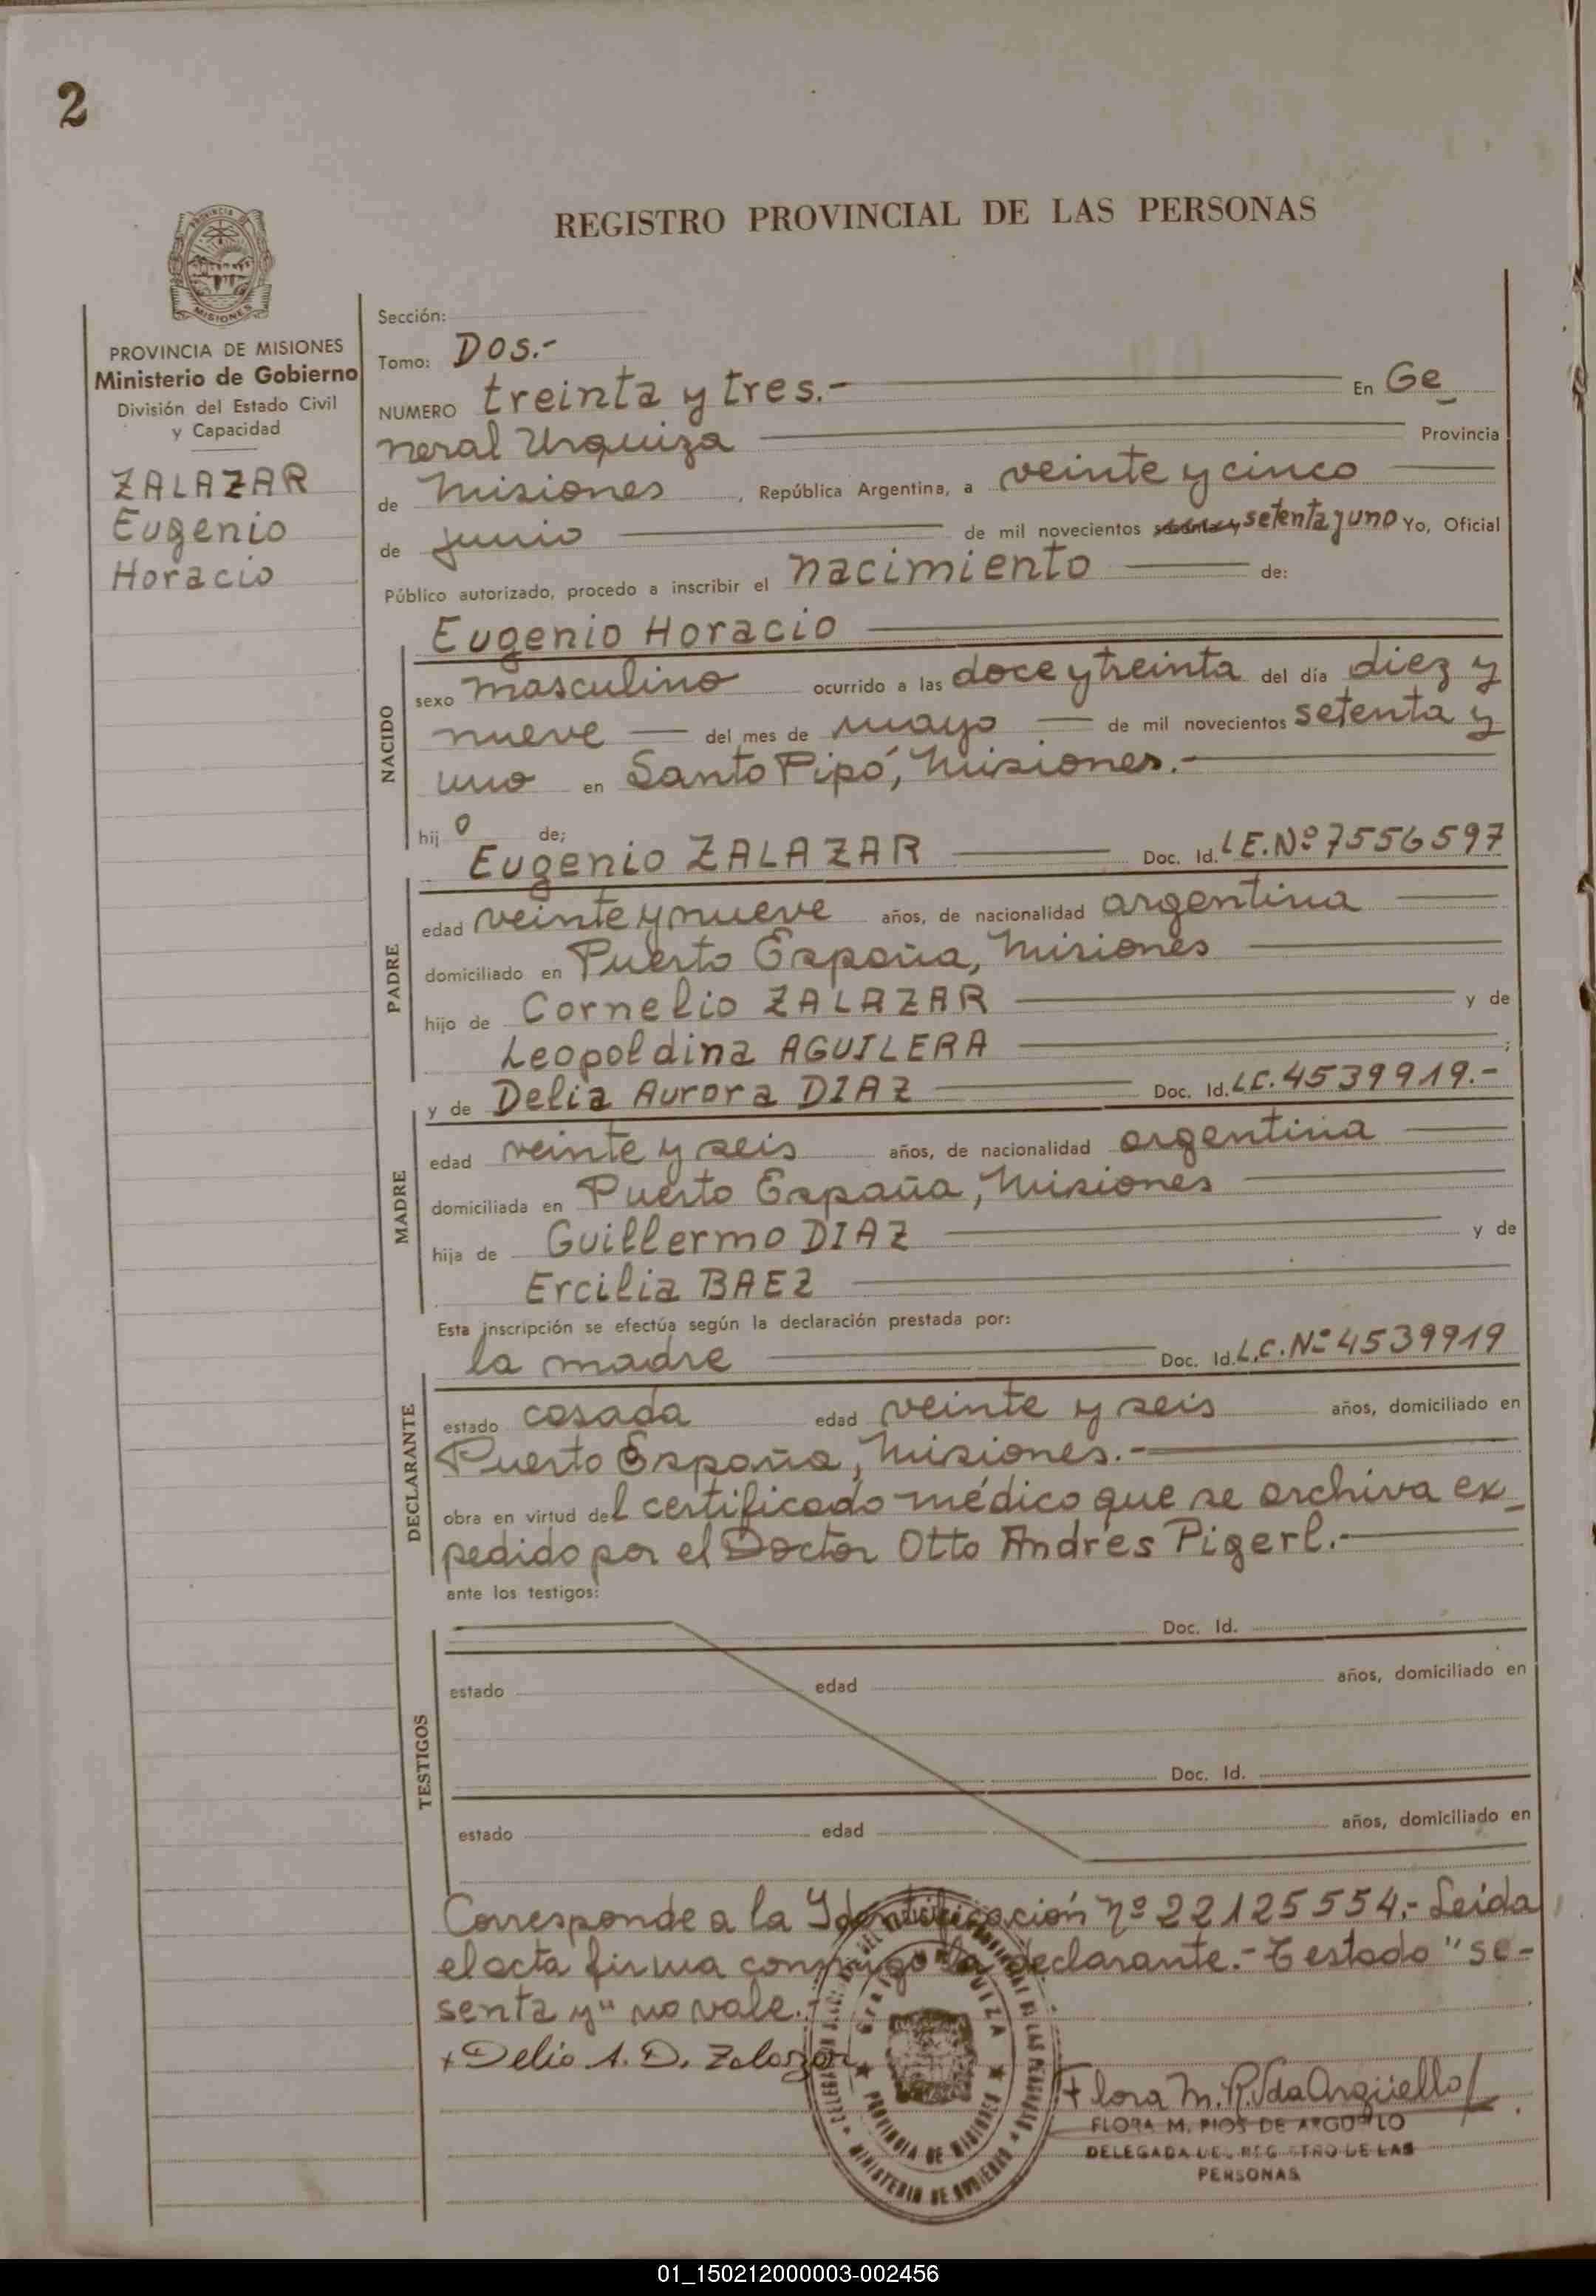 2
REGISTRO PROVINCIAL DE LAS PERSONAS
PROVINCIA DE
MISIONES
PROVINCIA DE MISIONES
Ministerio de Gobierno
División del Estado Civil
y Capacidad
ZALAZAR
Eugenio
Horacio
Sección:
Tomo: Dos.-
NUMERO treinta y tres.- En Ge
neral Urquiza Provincia
de Misiones, República Argentina, a veinte y cinco
de junio de mil novecientos sesenta y setenta y uno Yo, Oficial
Público autorizado, procedo a inscribir el nacimiento de:
Eugenio Horacio
NACIDO
sexo masculino ocurrido a las doce y treinta del día diez y
nueve del mes de mayo de mil novecientos setenta y
uno en Santo Pipó, Misiones.-
hijo de;
Eugenio ZALAZAR Doc. Id. L.E.Nº 7556597
PADRE
edad veinte y nueve años, de nacionalidad argentina
domiciliado en Puerto España, Misiones
hijo de Cornelio ZALAZAR y de
Leopoldina AGUILERA ;
y de Delia Aurora DIAZ Doc. Id. L.C. 4539919.-
MADRE
edad veinte y seis años, de nacionalidad argentina
domiciliada en Puerto España, Misiones
hija de Guillermo DIAZ y de
Ercilia BAEZ
Esta inscripción se efectúa según la declaración prestada por:
la madre Doc. Id. L.C. Nº 4539919
DECLARANTE
estado casada edad veinte y seis años, domiciliado en
Puerto España, Misiones.-
obra en virtud del certificado médico que se archiva ex_
pedido por el Doctor Otto Andrés Pigerl.-
ante los testigos:
TESTIGOS
Doc. Id.
estado edad años, domiciliado en
Doc. Id.
estado edad años, domiciliado en
Corresponde a la Identificación Nº 22125554.- Leída
el acta firma conmigo la declarante.- Testado "se-
senta y" no vale.-
+Delia A. D. Zalazar
Flora M. P. Vda Argüello
FLORA M. PIOS DE ARGUELLO
DELEGADA DEL REGISTRO DE LAS
PERSONAS
Gral. URQUIZA
PROVINCIA DE MISIONES
MINISTERIO DE GOBIERNO
01_150212000003-002456